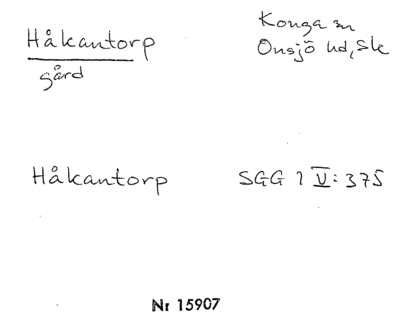 Håkantorp
gård
Konga sn
Onsjö hd, Sk
Håkantorp
SGG 1 V: 375
Nr 15907